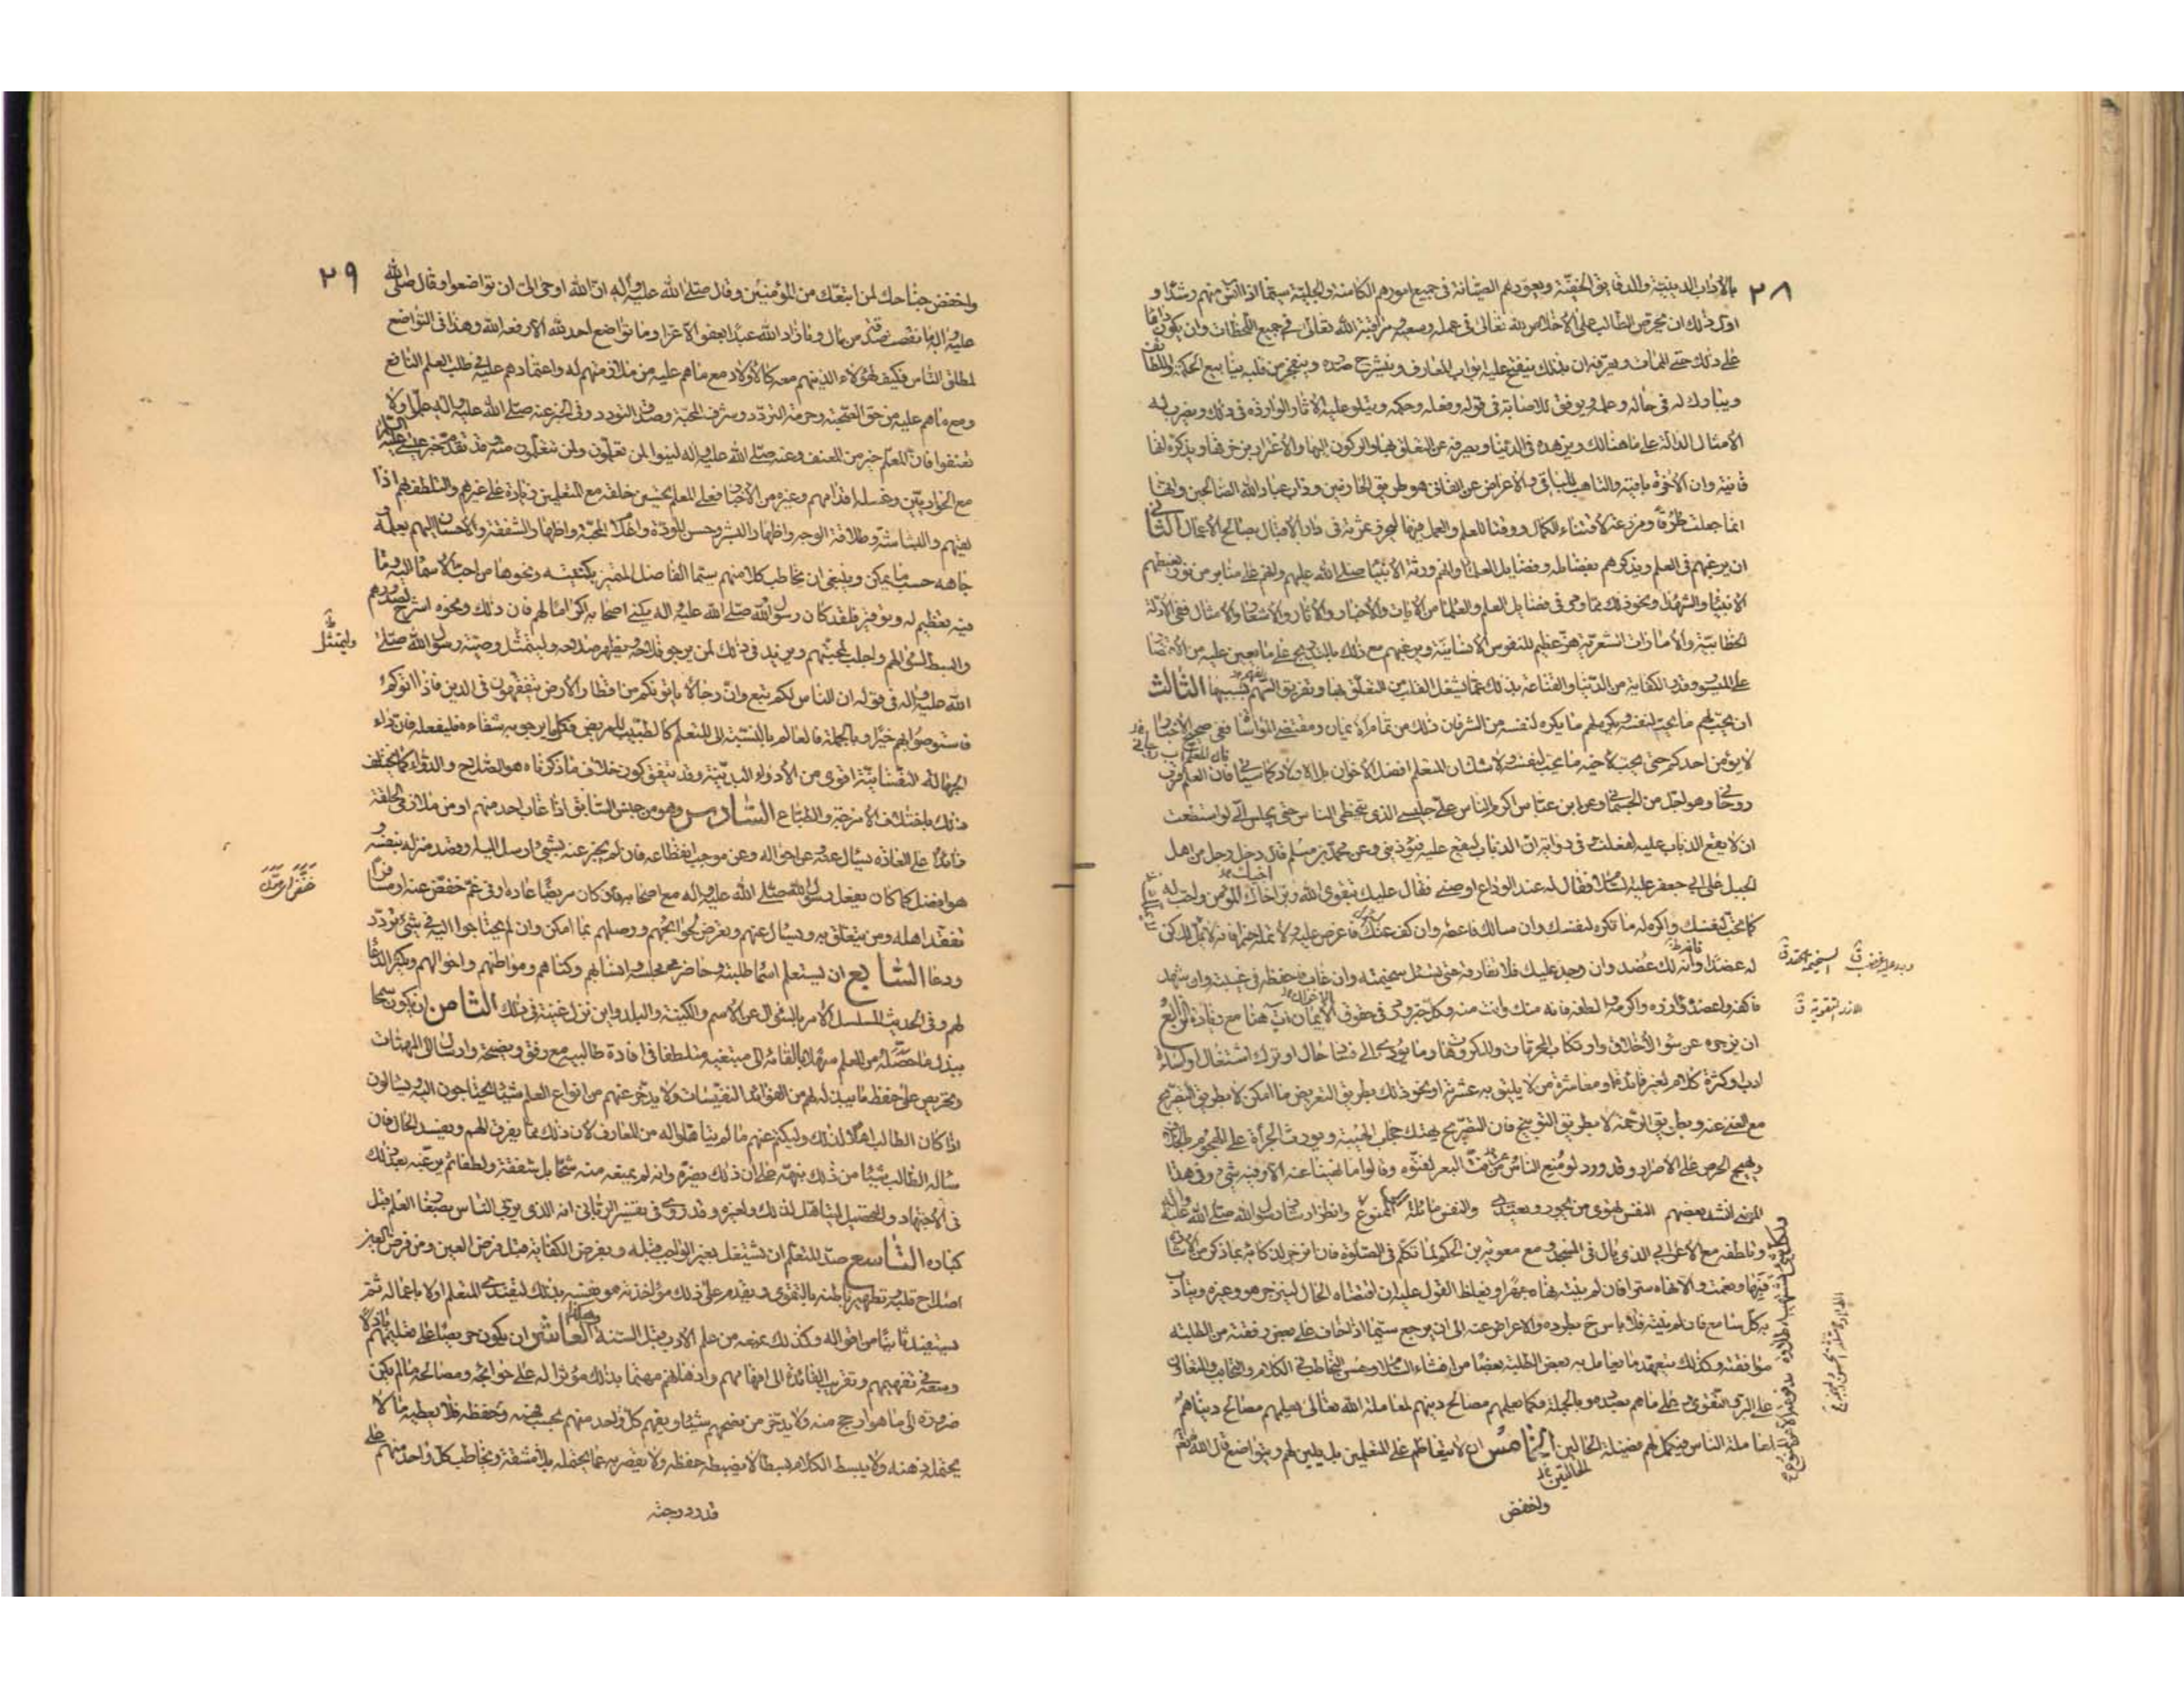 ٢٨
بالاداب الدينية والدقايق الخفية ويعودهم الصيانة في جميع امورهم الكامنة والجلية سيما اذا انس منهم رشدا و
اول ذلك ان يحرص الطالب على الاخلاص لله تعالى في عمله وسعيه ومراقبة الله تعالى في جميع اللحظات وان يكون دائما
على ذلك حتى الممات ويعرفه ان بذلك ينفتح عليه ابواب المعارف وينشرح صدره وينفجر من قلبه ينابيع الحكمة واللطائف
ويبارك له في حاله وعلمه ويوفق للاصابة في قوله وفعله وحكمه ويتلو عليه الاثار الواردة في ذلك ويضرب له
الامثال الدالة على ما هنالك ويزهده في الدنيا ويصرفه عن التعلق بها والركون اليها والاغترار بزخرفها ويذكره انها
فانية وان الاخرة باقية والتاهب للباقي والاعراض عن الفاني هو طريق الحازمين وداب عباد الله الصالحين وانها
انما جعلت ظرفا ومزرعة لاقتناء الكمال ووقتا للعلم والعمل فيها ليحرز ثمرته في دار الاقبال بصالح الاعمال الثاني
ان يرغبهم في العلم ويذكرهم بفضايله وفضايل العلماء وانهم ورثة الانبياء صلى الله عليهم وانهم على منابر من نور يغبطهم
الانبياء والشهداء ونحو ذلك مما ورد في فضايل العلم والعلماء من الايات والاخبار والاثار والاشعار والامثال ففي الادلة
الخطابية والامارات الشعرية هز عظيم للنفوس الانسانية ويرغبهم مع ذلك بالتدريج على ما يعين عليه من الاقتصار
على الميسور وقدر الكفاية من الدنيا والقناعة بذلك عما يشغل القلب من التعلق بها وتفريق الهم بسببها الثالث
ان يحب لهم ما يحب لنفسه ويكره لهم ما يكره لنفسه من الشر فان ذلك من تمام الايمان ومقتضى المواساة ففي صحيح الاخبار
لا يؤمن احدكم حتى يحب لاخيه ما يحب لنفسه ولا شك ان المتعلم افضل الاخوان بل الاولاد كما سياتي فان العلم قرب
روحاني وهو اجل من الجسماني وعن ابن عباس اكرم الناس علي جليسي الذي يتخطى الناس حتى يجلس الي لو استطعت
ان لا يقع الذباب عليه لفعلت وفي رواية ان الذباب ليقع عليه فيؤذيني وعن محمد بن مسلم قال دخل رجل من اهل
الجبل على ابي جعفر عليه السلام فقال له عند الوداع اوصني فقال عليك بتقوى الله وبر اخاك المؤمن واحب له
كما تحب لنفسك واكره له ما تكره لنفسك وان سالك فاعطه وان كف عنك فاعرض عليه لا تمله خيرا فانه لا يملك كن
له عضدا فانه لك عضد وان وجد عليك فلا تفارقه حتى تسل سخيمته وان غاب فاحفظه في غيبته وان شهد
فاكفه واعضده ووازره واكرمه ولاطفه فانه منك وانت منه وكل خبر ورد في حقوق الاخوان آت هنا مع زيادة الرابع
ان يزجره عن سوء الاخلاق وارتكاب المحرمات والمكروهات وما يؤدي الى فساد حال او ترك اشتغال او اساءة
ادب وكثرة كلام لغير فائدة او معاشرة من لا يليق به عشرته او نحو ذلك بطريق التعريض ما امكن لا بطريق التصريح
مع الغنى عنه وبطريق الرحمة لا بطريق التوبيخ فان التصريح يهتك حجاب الهيبة ويورث الجراة على الهجوم بالخلاف
ويهيج الحرص على الاصرار وقد ورد لو منع الناس عن فت البعر لفتوه وقالوا ما نهينا عنه الا وفيه شيء وفي هذا
المعنى انشد بعضهم النفس تهوى من يجور ويعتدي والنفس مائلة الى الممنوع وانظر ارشاد رسول الله صلى الله عليه واله
وتلطفه مع الاعرابي الذي بال في المسجد ومع معوية بن الحكم لما تكلم في الصلوة فان انزجر لذكائه بما ذكر من الاشارة
فبها ونعمت والا نهاه سرا فان لم ينته نهاه جهرا ويغلظ القول عليه ان اقتضاه الحال لينزجر هو وغيره ويتادب
به كل سامع فان لم ينته فلا باس ح بطرده والاعراض عنه الى ان يرجع سيما اذا خاف على بعض رفقته من الطلبة
موافقته وكذلك يتعهد ما يعامل به بعض الطلبة بعضا من افشاء السلام وحسن التخاطب في الكلام والتحابب والتعاون
على البر والتقوى وعلى ما هم بصدده وبالجملة فكما يعلمهم مصالح دينهم لمعاملة الله تعالى يعلمهم مصالح دنياهم
لمعاملة الناس فيكمل لهم فضيلة الحالتين الخامس ان لا يتعاظم على المتعلمين بل يلين لهم ويتواضع قال الله تعالى
واخفض
٢٩
واخفض جناحك لمن اتبعك من المؤمنين وقال صلى الله عليه واله ان الله اوحى الي ان تواضعوا وقال صلى الله
عليه واله ما نقصت صدقة من مال وما زاد الله عبدا بعفو الا عزا وما تواضع احد لله الا رفعه الله وهذا في التواضع
لمطلق الناس فكيف بهؤلاء الذين هم معه كالاولاد مع ما هم عليه من ملازمتهم له واعتمادهم عليه في طلب العلم النافع
ومع ما هم عليه من حق الصحبة وحرمة التردد وشرف المحبة وصدق التودد وفي الخبر عنه صلى الله عليه واله علموا ولا
تعنفوا فان المعلم خير من المعنف وعنه صلى الله عليه واله لينوا لمن تعلمون ولمن تتعلمون منه وقد تقدم خبر عيسى عليه السلام
مع الحواريين وغسله اقدامهم وغيره من الاخبار فعلى المعلم تحسين خلقه مع المتعلمين زيادة على غيرهم والتلطف بهم اذا
لقيهم والبشاشة وطلاقة الوجه واظهار البشر وحسن المودة واعلام المحبة واظهار الشفقة والاحسان اليهم بعلمه و
جاهه حسب ما يمكن وينبغي ان يخاطب كلا منهم سيما الفاضل المتميز بكنيته ونحوها من احب الاسماء اليه وما
فيه تعظيم له وتوقير فلقد كان رسول الله صلى الله عليه واله يكني اصحابه اكراما لهم فان ذلك ونحوه اشرح لصدورهم
وابسط لسؤالهم واجلب لمحبتهم ويزيد في ذلك لمن يرجو فلاحه ويظهر صلاحه وليتمثل وصية رسول الله صلى
الله عليه واله في قوله ان الناس لكم تبع وان رجالا ياتونكم من اقطار الارض يتفقهون في الدين فاذا اتوكم
فاستوصوا بهم خيرا وبالجملة فالعالم بالنسبة الى المتعلم كالطبيب للمريض فكل ما يرجو به شفاءه فليفعله فان داء
الجهالة النفسانية اقوى من الادواء البدنية وقد يتفق كون خلاف ما ذكرناه هو الصلاح والدواء كما يختلف
ذلك باختلاف الامزجة والطباع السادس وهو من جنس السابق اذا غاب احد منهم او من ملازمي الحلقة
زائدا على العادة يسال عنه وعن احواله وعن موجب انقطاعه فان لم يخبر عنه بشيء ارسل اليه او قصد منزله بنفسه و
هو افضل كما كان يفعل رسول الله صلى الله عليه واله مع اصحابه فان كان مريضا عاده او في غم خفض عنه او مسافرا
تفقد اهله ومن يتعلق به ويسال عنهم ويعرض لحوائجهم ووصلهم بما امكن وان لم يحتاجوا اليه في شيء تودد
ودعا السابع ان يستعلم اسماء طلبته وحاضري مجلسه وانسابهم وكناهم ومواطنهم واحوالهم ويكثر الدعاء
لهم وفي الحديث المسلسل الامر بالسؤال عن الاسم والكنية والبلد واين نزل غنية في ذلك الثامن ان يكون سمحا
ببذل ما حصله من العلم سهلا بالقائه الى مبتغيه متلطفا في افادة طالبيه مع رفق ونصيحة وارشاد الى المهمات
وتحريض على حفظ ما يبذله لهم من الفوائد النفيسات ولا يدخر عنهم من انواع العلم شيئا يحتاجون اليه ويسالون
اذا كان الطالب اهلا لذلك وليكتم عنهم ما لم يتاهلوا له من المعارف لان ذلك مما يفرق الهم ويفسد الحال فان
ساله الطالب شيئا من ذلك نبهه على ان ذلك يضره وانه لم يمنعه منه شحا بل شفقة ولطفا ثم يرغبه بعد ذلك
في الاجتهاد والتحصيل ليتاهل لذلك ولغيره وقد روي في تفسير الرباني انه الذي يربي الناس بصغار العلم قبل
كباره التاسع صد المتعلم ان يشتغل بغير الواجب قبله وبفرض الكفاية قبل فرض العين ومن فرض العين
اصلاح قلبه وتطهير باطنه بالتقوى ويقدم على ذلك مؤاخذته هو نفسه بذلك ليقتدي المتعلم اولا باعماله ثم
يستفيد ثانيا من اقواله وكذلك يمنعه من علم الادب قبل السنة وهكذا العاشر ان يكون حريصا على تعليمهم باذلا
وسعه في تفهيمهم وتقريب الفائدة الى افهامهم واذهانهم مهتما بذلك مؤثرا له على حوائجه ومصالحه ما لم يكن
ضرورة الى ما هو ارجح منه ولا يدخر من نصحهم شيئا ويفهم كل واحد منهم بحسب فهمه وحفظه فلا يعطيه ما لا
يحتمله ذهنه ولا يبسط الكلام بسطا لا يضبطه حفظه ولا يقصر به عما يحتمله بلا مشقة ويخاطب كل واحد منهم على
قدر درجته